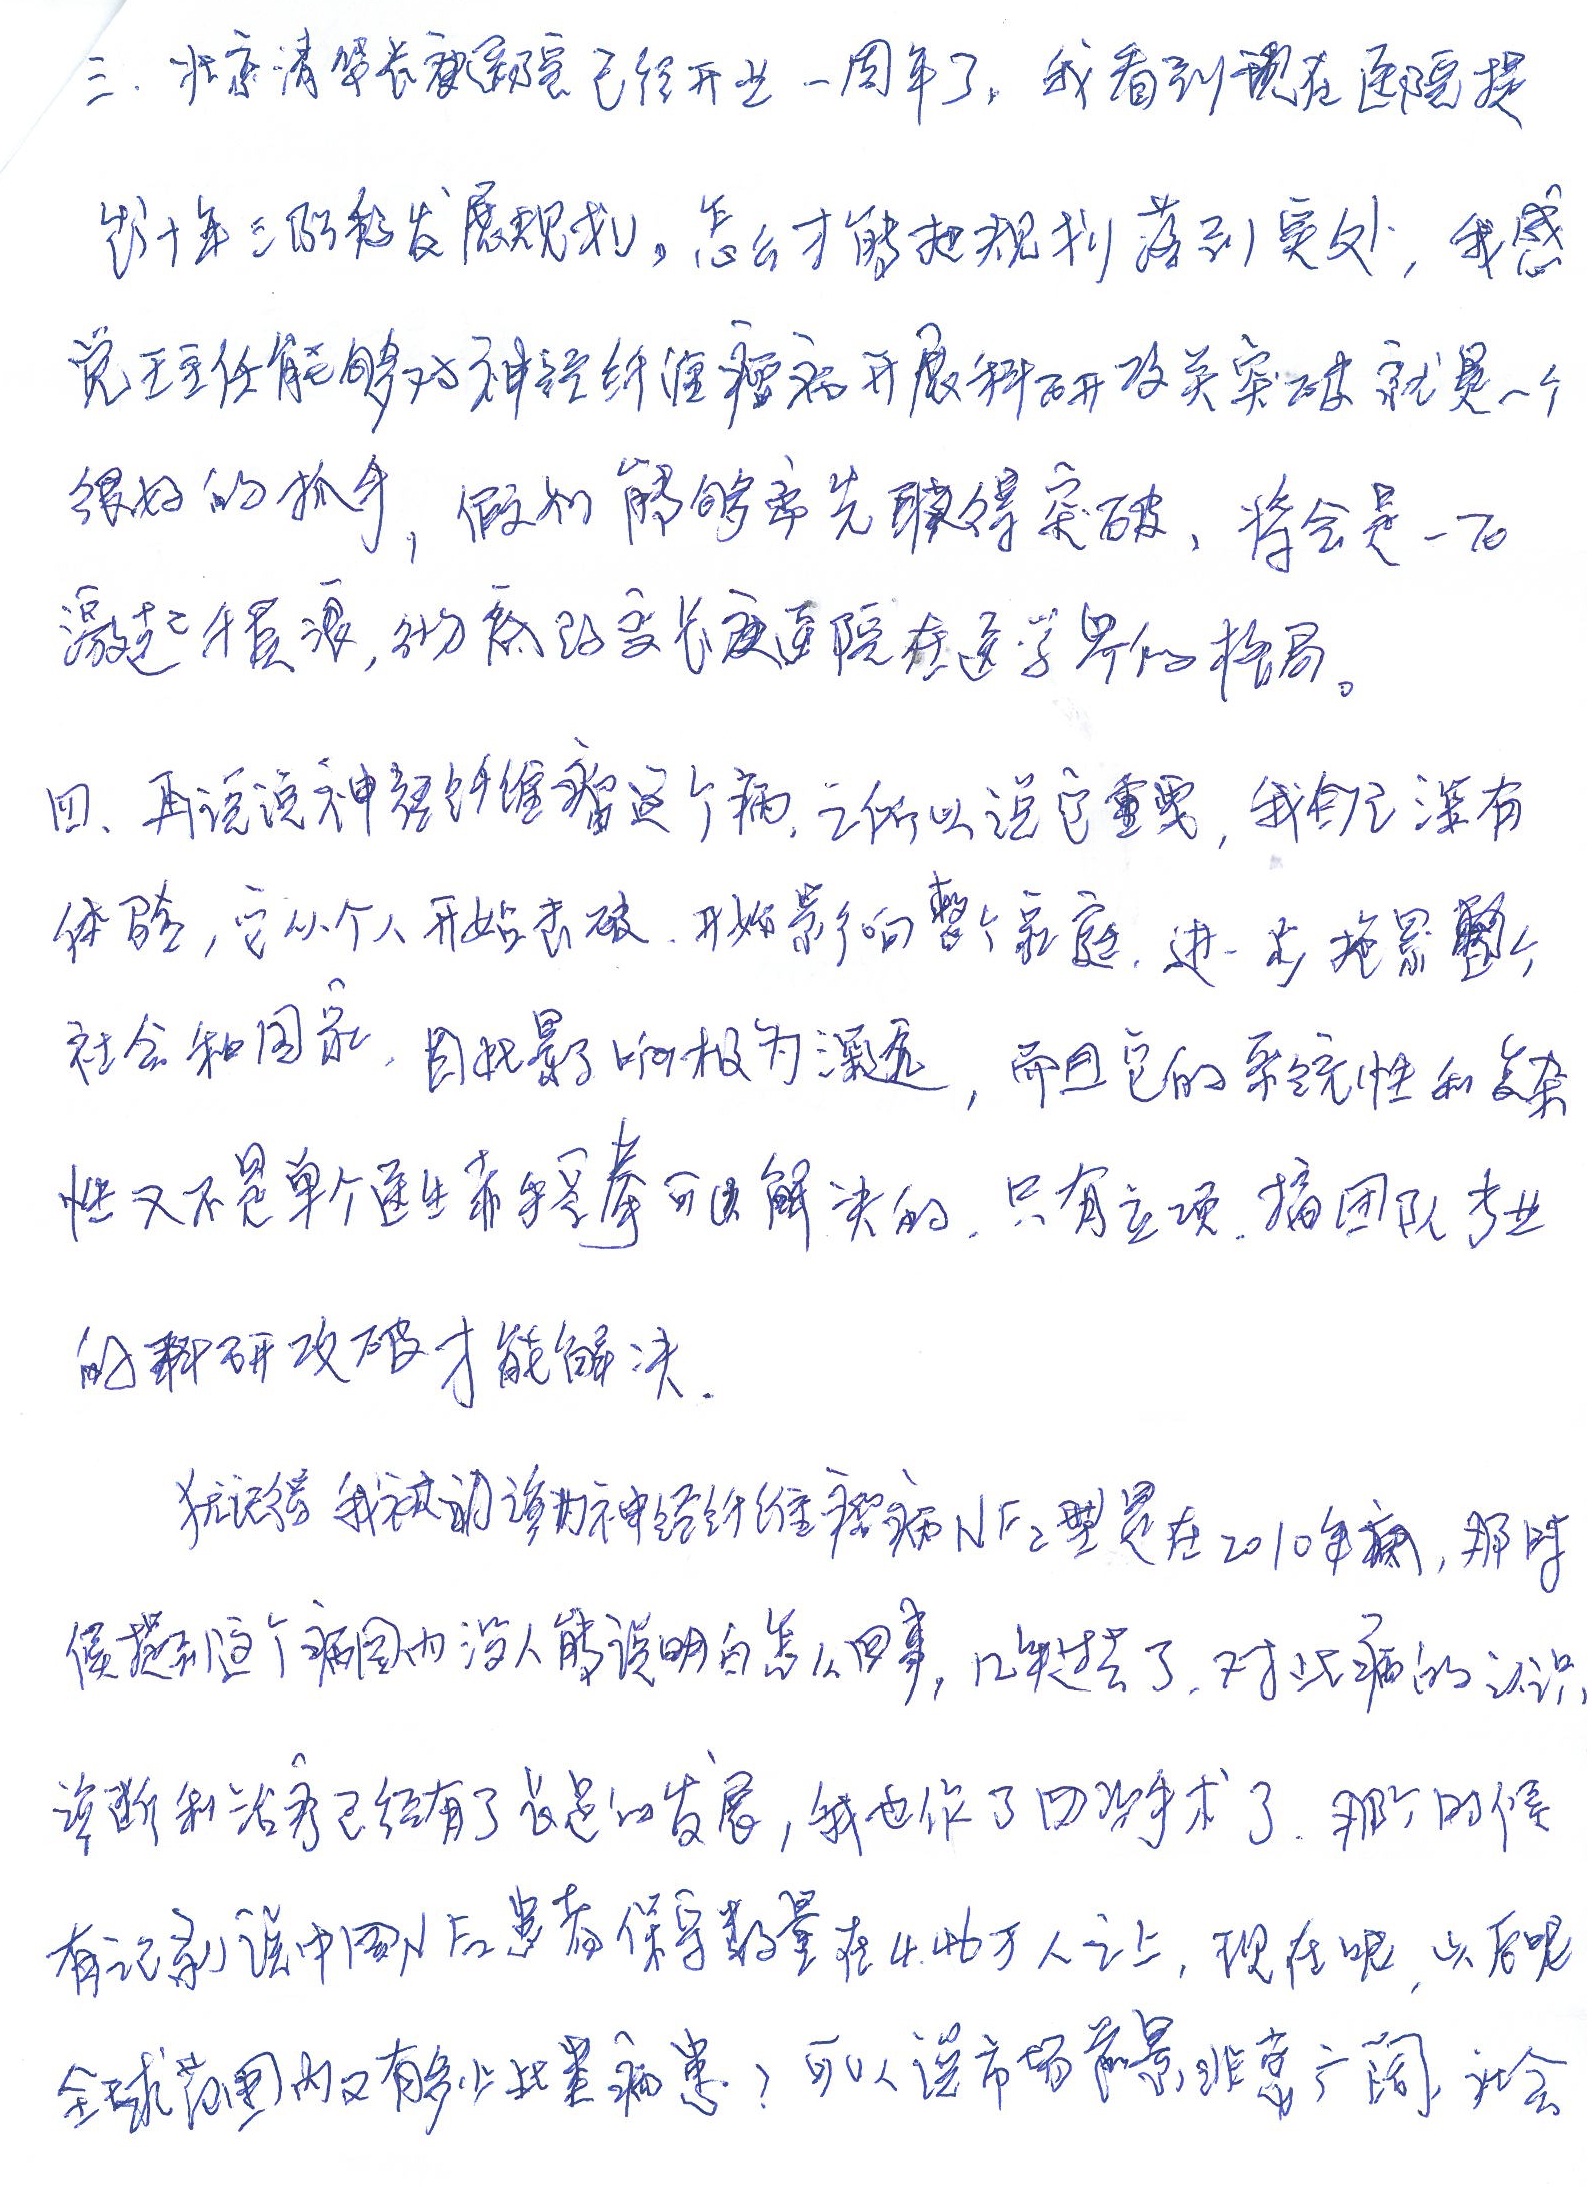 三、北京清华长庚医院已经开业一周年了，我看到现在医院提
出十年三阶段发展规划，怎么才能把规划落到实处，我感
觉王主任能够对神经纤维瘤病开展科研攻关突破就是一个
很好的抓手，假如能够率先取得突破，将会是一石
激起千层浪，彻底改变长庚医院在医学界的格局。
四、再说说神经纤维瘤这个病，之所以说它重要，我自己深有
体验，它从个人开始击破，开始影响整个家庭，进一步拖累整个
社会和国家，因此影响极为深远，而且它的系统性和复杂
性又不是单个医生赤手空拳可以解决的，只有立项，搞团队专业
的科研攻破才能解决.
犹记得我被确诊为神经纤维瘤病NF2型是在2010年，那时
候提到这个病国内没人能说明白怎么回事，几年过去了，对此病的认识，
诊断和治疗已经有了长足的发展，我也作了四次手术了，那个时候
有记录说中国NF2患者保守数量在4.46万人之上，现在呢，以后呢
全球范围内又有多少此类病患？可以说市场前景非常广阔，社会